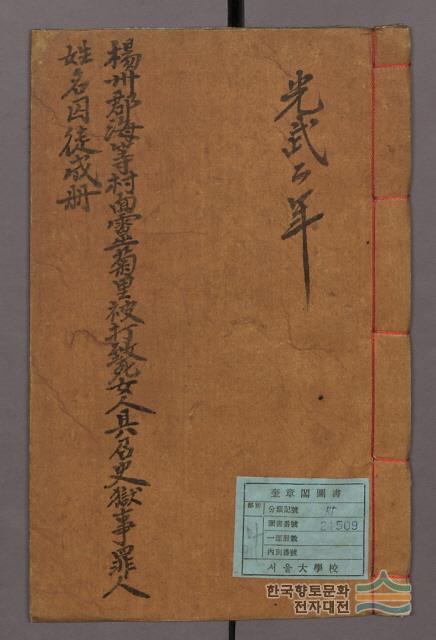 光武 年
楊州郡海等村面 菊里被打致死女人具召史獄事罪人
姓名囚徒成冊
奎章閣圖書
部別
分類記號
圖書番號 21509
一部冊數
內別番號
서울大學校
한국향토문화
전자대전